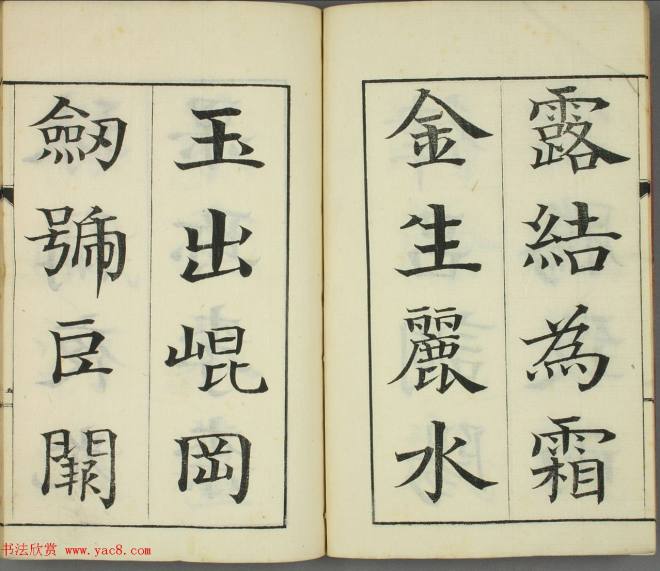 露結為霜
金生麗水
玉出崐岡
劒號巨闕
书法欣赏 www.yac8.com